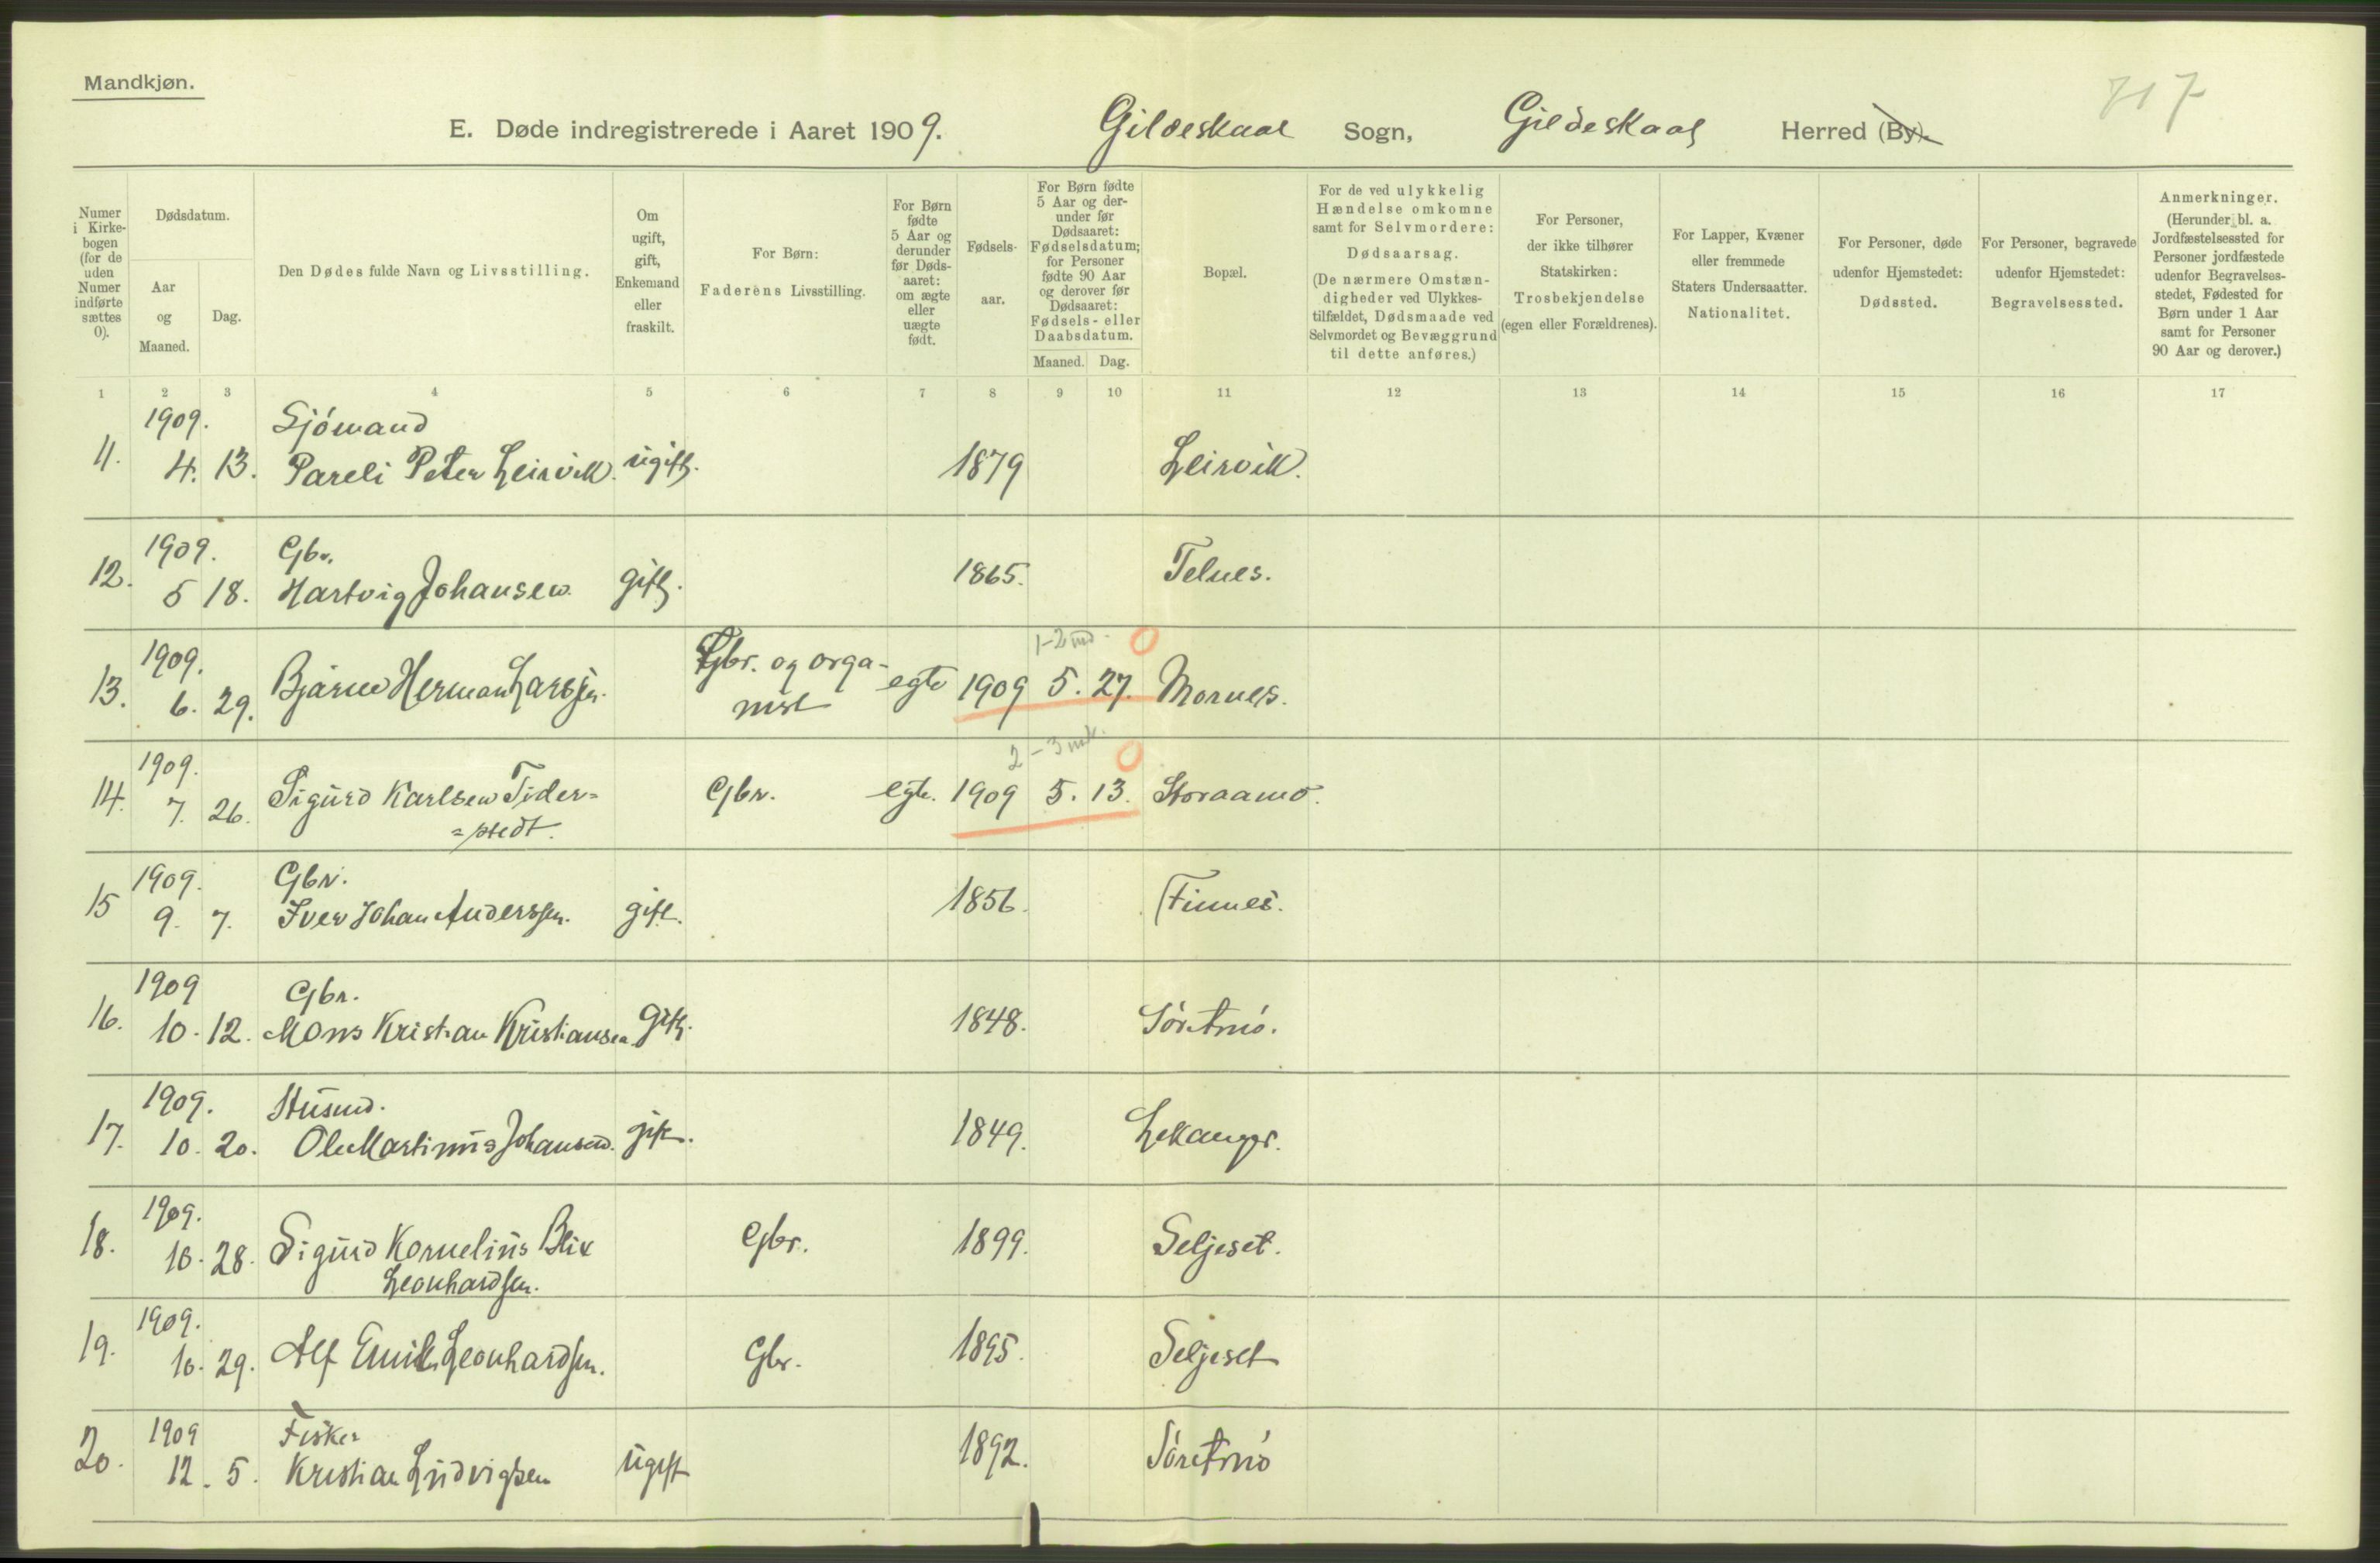 Mandkjøn.
717
E. Døde indregistrerede i Aaret 1909. Gildeskaal Sogn, Gildeskaal Herred (By).
Numer i Kirkebogen (for de uden Numer indførte sættes 0).
Dødsdatum.
Aar og Maaned.
Dag.
Den Dødes fulde Navn og Livsstilling.
Om ugift, gift, Enkemand eller fraskilt.
For Børn: Faderens Livsstilling.
For Børn fødte 5 Aar og derunder før Dødsaaret: om ægte eller uægte født.
Fødselsaar.
For Børn fødte 5 Aar og derunder før Dødsaaret: Fødselsdatum; for Personer fødte 90 Aar og derover før Dødsaaret: Fødsels- eller Daabsdatum.
Maaned. Dag.
Bopæl.
For de ved ulykkelig Hændelse omkomne samt for Selvmordere: Dødsaarsag. (De nærmere Omstændigheder ved Ulykkestilfældet, Dødsmaade ved Selvmordet og Bevæggrund til dette anføres.)
For Personer, der ikke tilhører Statskirken: Trosbekjendelse (egen eller Forældrenes).
For Lapper, Kvæner eller fremmede Staters Undersaatter. Nationalitet.
For Personer, døde udenfor Hjemstedet: Dødssted.
For Personer, begravede udenfor Hjemstedet: Begravelsessted.
Anmerkninger. (Herunder bl. a. Jordfæstelsessted for Personer jordfæstede udenfor Begravelsesstedet, Fødested for Børn under 1 Aar samt for Personer 90 Aar og derover.)
1 2 3 4 5 6 7 8 9 10 11 12 13 14 15 16 17
1909. Sjómand
11. 4. 13. Pareli Peter Leirvik. ugift. 1879 Leirvik.
1909. Gbr.
12. 5 18. Hartvig Johansen gift. 1865. Telnes.
1909. Gbr. og orga- 1-2 md. 0
13. 6. 29. Bjarne Herman Larssen. nist egte 1909 5. 27. Mornes.
1909. 2-3 md. 0
14. 7. 26. Sigurd Karlsen Tider= Gbr. egte. 1909 5. 13. Storaamo.
=stedt.
1909. Gbr.
15 9. 7. Iver Johan Anderssen. gift. 1856. Finnes.
1909 Gbr.
16. 10. 12. Mons Kristian Kristiansen gift. 1848. Söretnió.
1909. Husmd.
17. 10. 20. Ole Martinus Johansen. gift. 1849. Lekanger.
1909.
18. 10. 28. Sigurd Kornelius Blix Gbr. 1899. Seljeset.
Leonhardsen.
1909.
19. 10. 29. Alf Emil Leonhardsen. Gbr. 1895. Seljeset
1909 Fisker
20. 12. 5. Kristian Ludvigsen ugift 1892. Söretnió